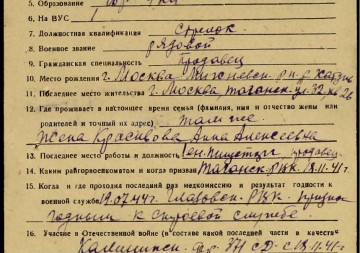 5. Образование
6. На ВУС 1
7. Должностная квалификация стрелок
8. Военное звание рядовой
9. Гражданская специальность продавец
10. Место рождения г. Москва
11. Последнее место жительства г. Москва таганск. ул. 32 кв 26
12. Где проживает в настоящее время семья (фамилия, имя и отчество жены или
родителей и точный их адрес) там же
Жена Красивова Анна Алексеевна
13. Последнее место работы и должность продавец
14. Каким райгорвоенкоматом и когда призван Таганск. РВК.
15. Когда и где проходил последний раз медкомиссию и результат годности к
военной службе 19.07.44г. РВК. признан
годным к строевой службе.
16. Участие в Отечественной войне (в составе какой последней части и в качеств
Калининск. фр. 371 СД с